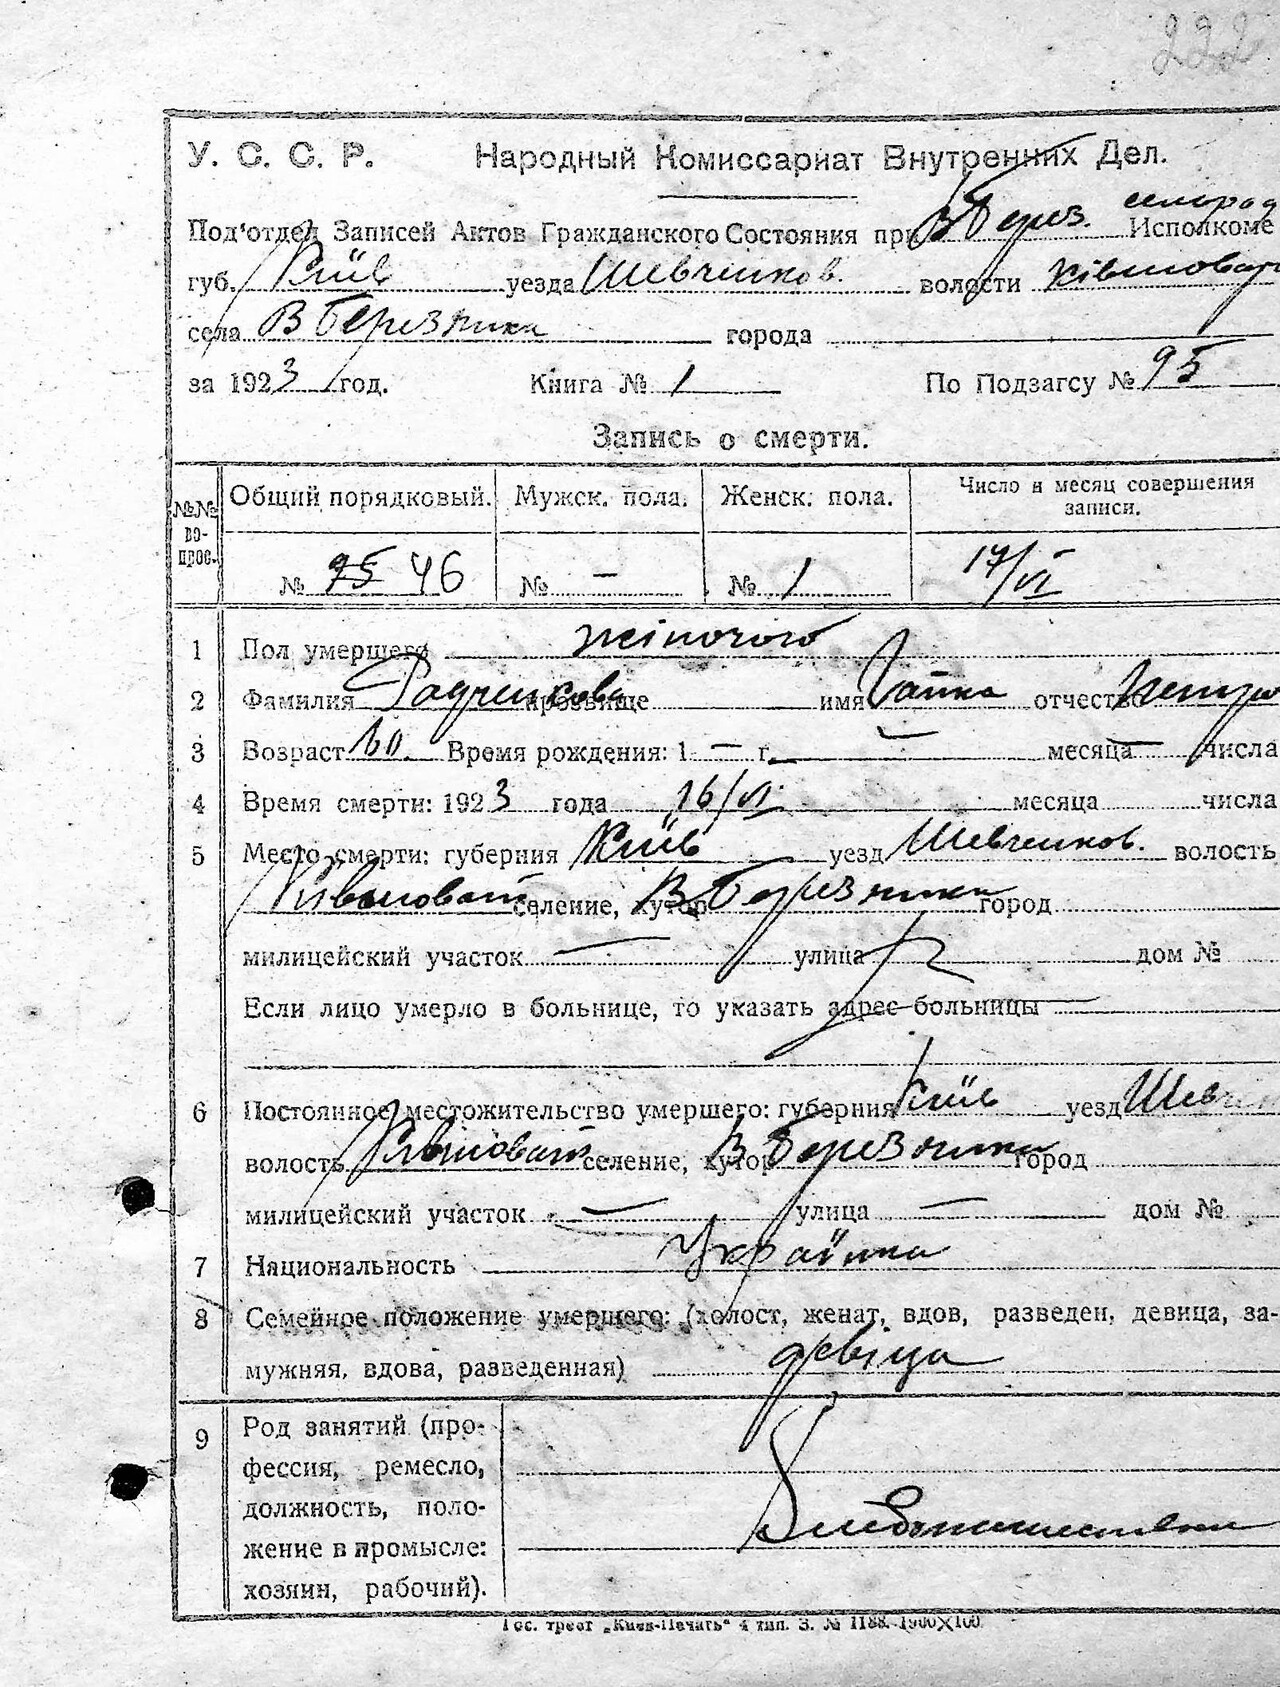 222
У. С. С. Р. Народный Комиссариат Внутренних Дел.
Под'отдел Записей Актов Гражданского Состояния при В Берез. Исполкоме
губ. Київ уезда Шевченков. волости
села В Березнки города
за 1923 год. Книга № 1 По Подзагсу № 95
Запись о смерти.
№№ вопрос. Общий порядковый. Мужск. пола. Женск. пола. Число и месяц совершения записи.
№ 95 46 № — № 1 17/VI
1 Пол умершего жіночого
2 Фамилия Радченкова прозвище имя отчество
3 Возраст Время рождения: 1 — г. — месяца — числа
4 Время смерти: 1923 года 16/VI месяца числа
5 Место смерти: губерния Київ уезд Шевченков. волость
селение, хутор В Березники город
милицейский участок — улица дом №
Если лицо умерло в больнице, то указать адрес больницы —
6 Постоянное местожительство умершего: губерния Київ уезд Шевчен
волость селение, хутор В Березники город
милицейский участок — улица — дом №
7 Национальность Українка
8 Семейное положение умершего: (холост, женат, вдов, разведен, девица, за-
мужняя, вдова, разведенная) девіца
9 Род занятий (про-
фессия, ремесло,
должность, поло-
жение в промысле:
хозяин, рабочий).
Гос. трест „Киев-Печать“ 4 тип. З. № 1188—1900×100